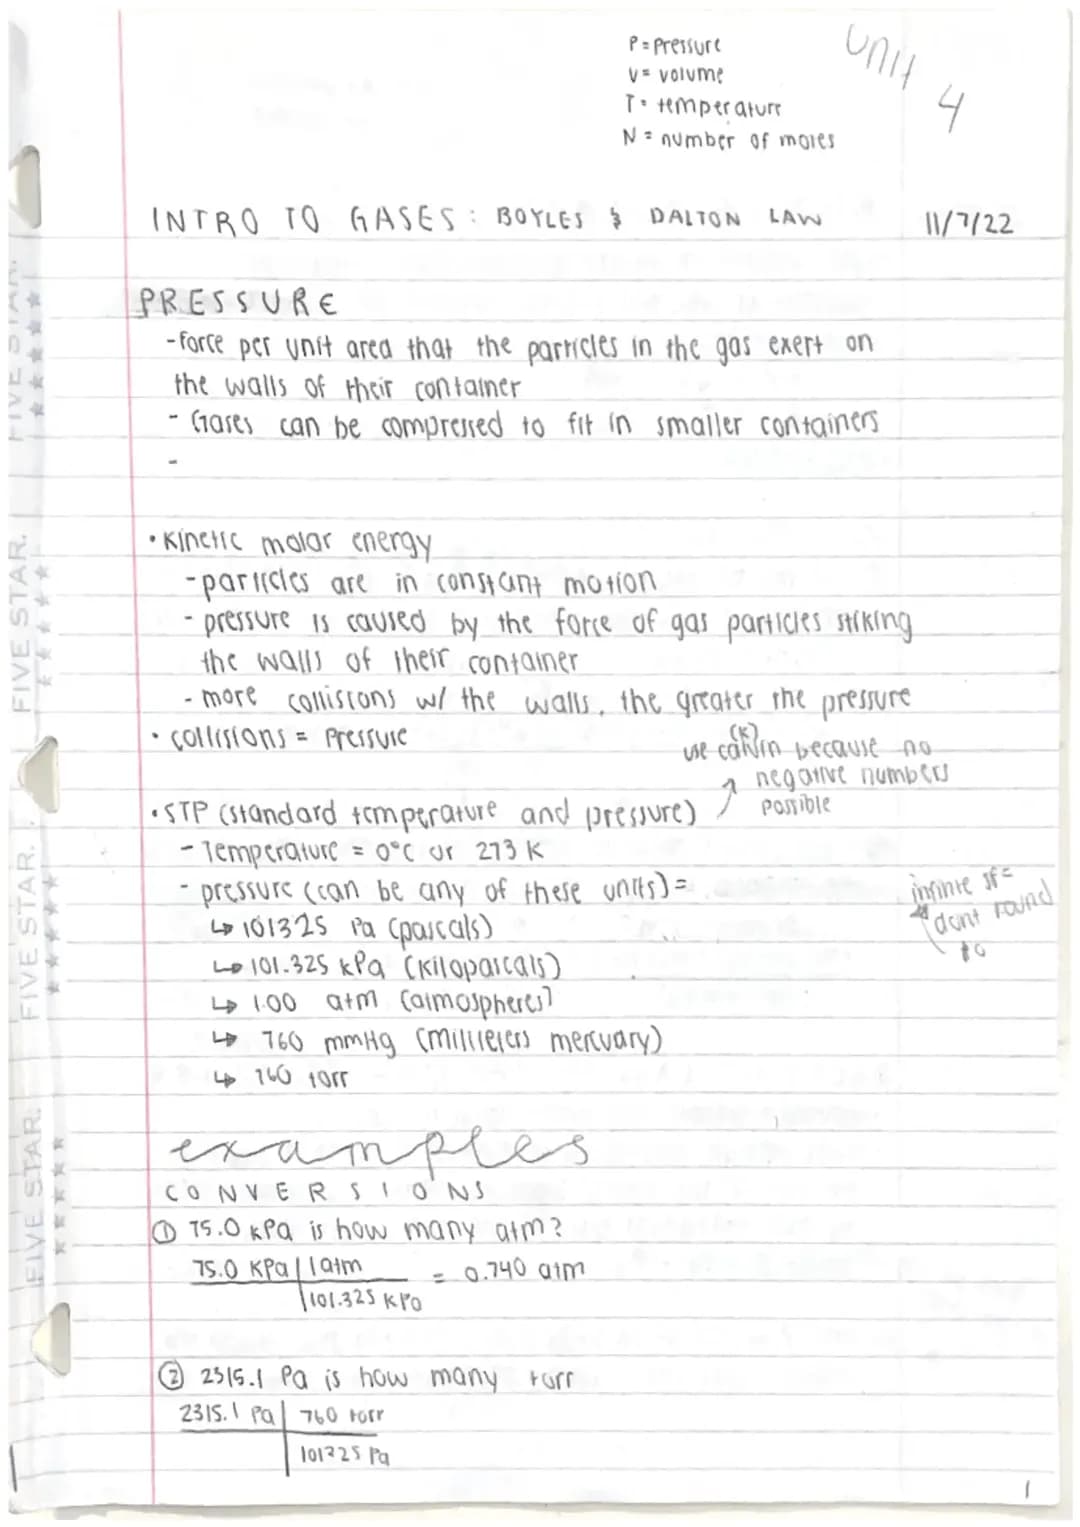 P = Pressure
V = volume
T = temperature
N = number of moles
Unit 4
INTRO TO GASES: BOYLES & DALTON LAW 11/7/22
PRESSURE
-force per unit area that the particles in the gas exert on
the walls of their container
- Gases can be compressed to fit in smaller containers
-
• Kinetic molar energy
-particles are in constant motion
- pressure is caused by the force of gas particles striking
the walls of their container
- more collisions w/ the walls, the greater the pressure
• collisions = Pressure
(K)
use calvin because no
negative numbers
possible
• STP (standard temperature and pressure)
- Temperature = 0°C or 273 K
- pressure (can be any of these units) =
↳ 101325 Pa (pascals)
↳ 101.325 kPa (kilopascals)
↳ 1.00 atm (atmospheres)
↳ 760 mmHg (millieters mercuary)
↳ 760 torr
infinite sf =
dont round
to
examples
CONVERSIONS
① 75.0 kPa is how many atm?
75.0 KPa | 1atm = 0.740 atm
101.325 KPa
② 2315.1 Pa is how many torr
2315.1 Pa | 760 torr
101325 Pa
1
FIVE STAR.
FIVE STAR.
FIVE STAR.
FIVE STAR.